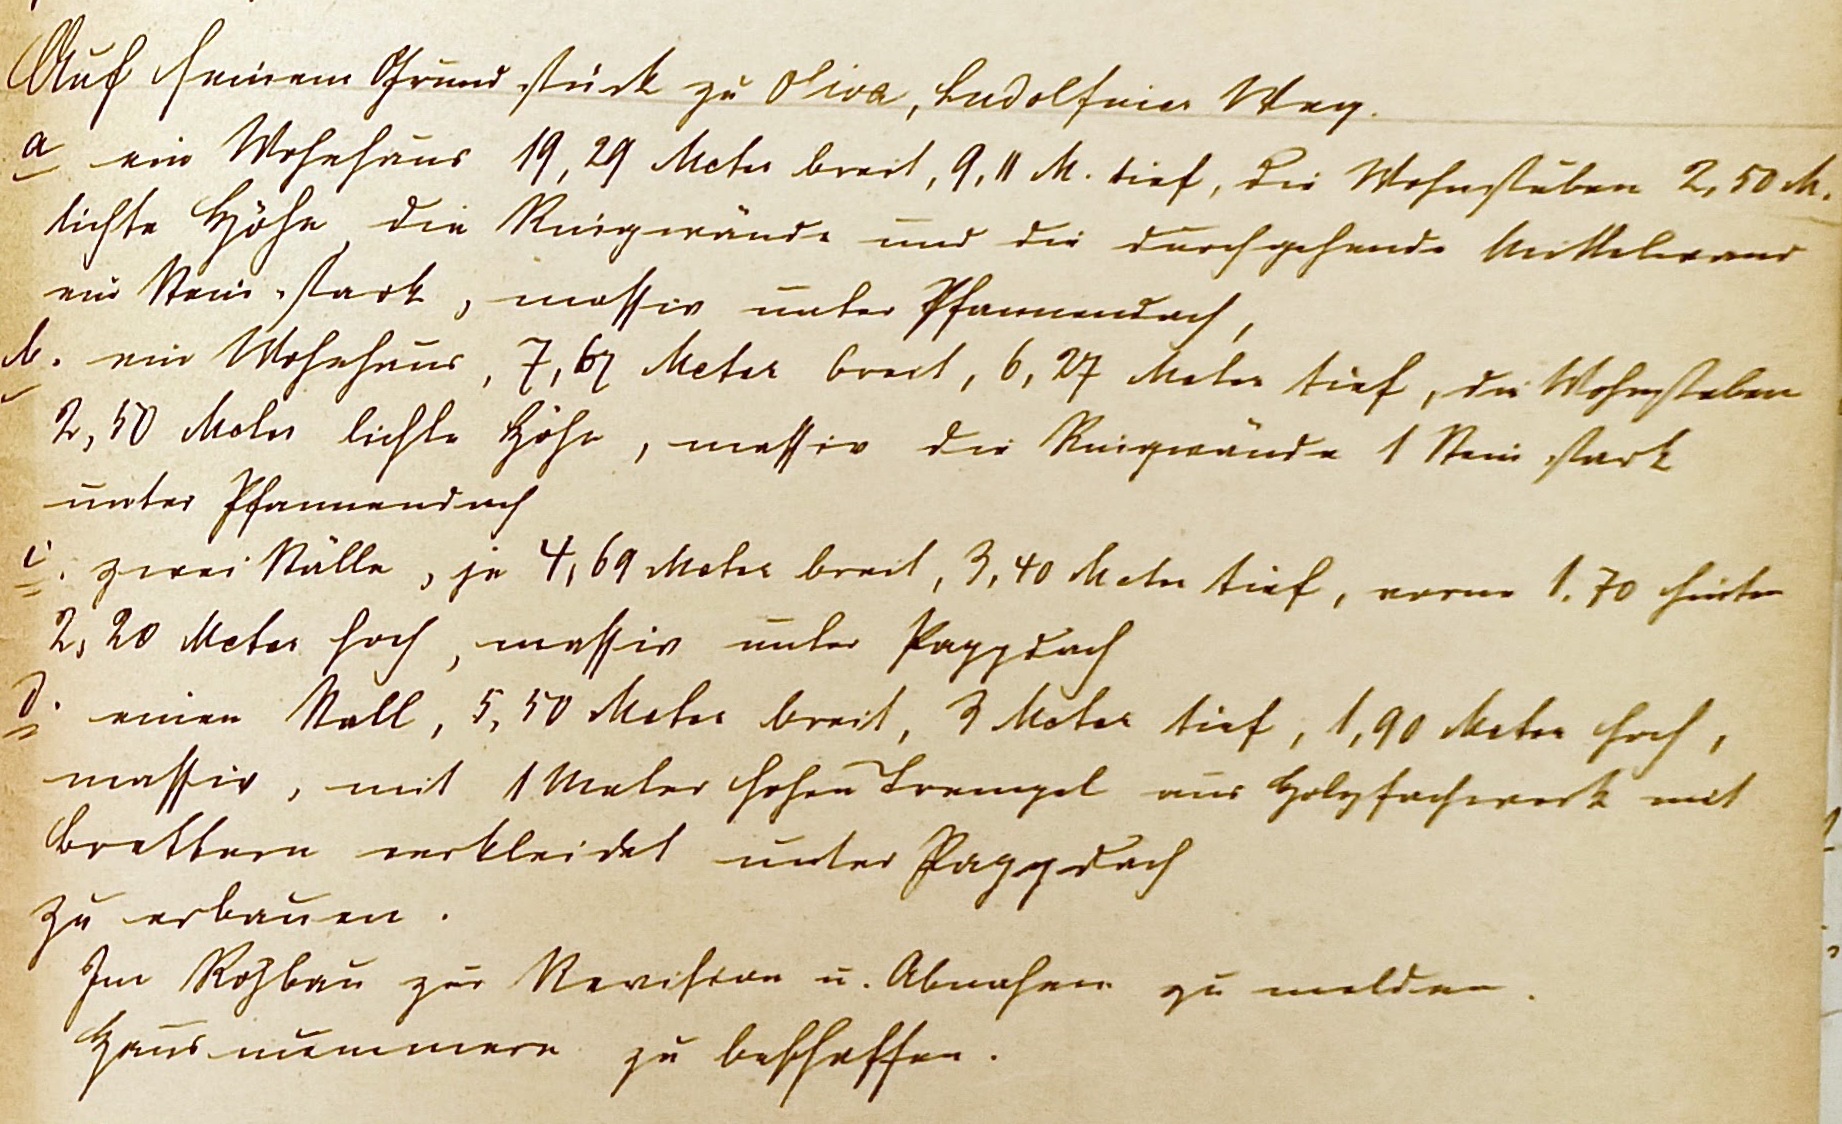 Auf seinem Grundstück zu Oliva, Ludolfiner Weg.
a ein Wohnhaus 19,29 Meter breit, 9,11 M. tief, die Wohnstuben 2,50 M.
lichte Höhe, die Ringwände und die durchgehende Mittelwand
ein Stein stark, massiv unter Pfannendach,
b. ein Wohnhaus, 7,67 Meter breit, 6,27 Meter tief, die Wohnstuben
2,50 Meter lichte Höhe, massiv die Ringwände 1 Stein stark
unter Pfannendach
c. zwei Ställe, je 4,69 Meter breit, 3,40 Meter tief, vorne 1.70 hinten
2,20 Meter hoch, massiv unter Pappdach
d. einen Stall, 5,50 Meter breit, 3 Meter tief, 1,90 Meter hoch,
massiv, mit 1 Meter hohen Drempel aus Holzfachwerk mit
Brettern verkleidet unter Pappdach
zu erbauen.
Im Rohbau zur Revision u. Abnahme zu melden.
Hausnummern zu beschaffen.